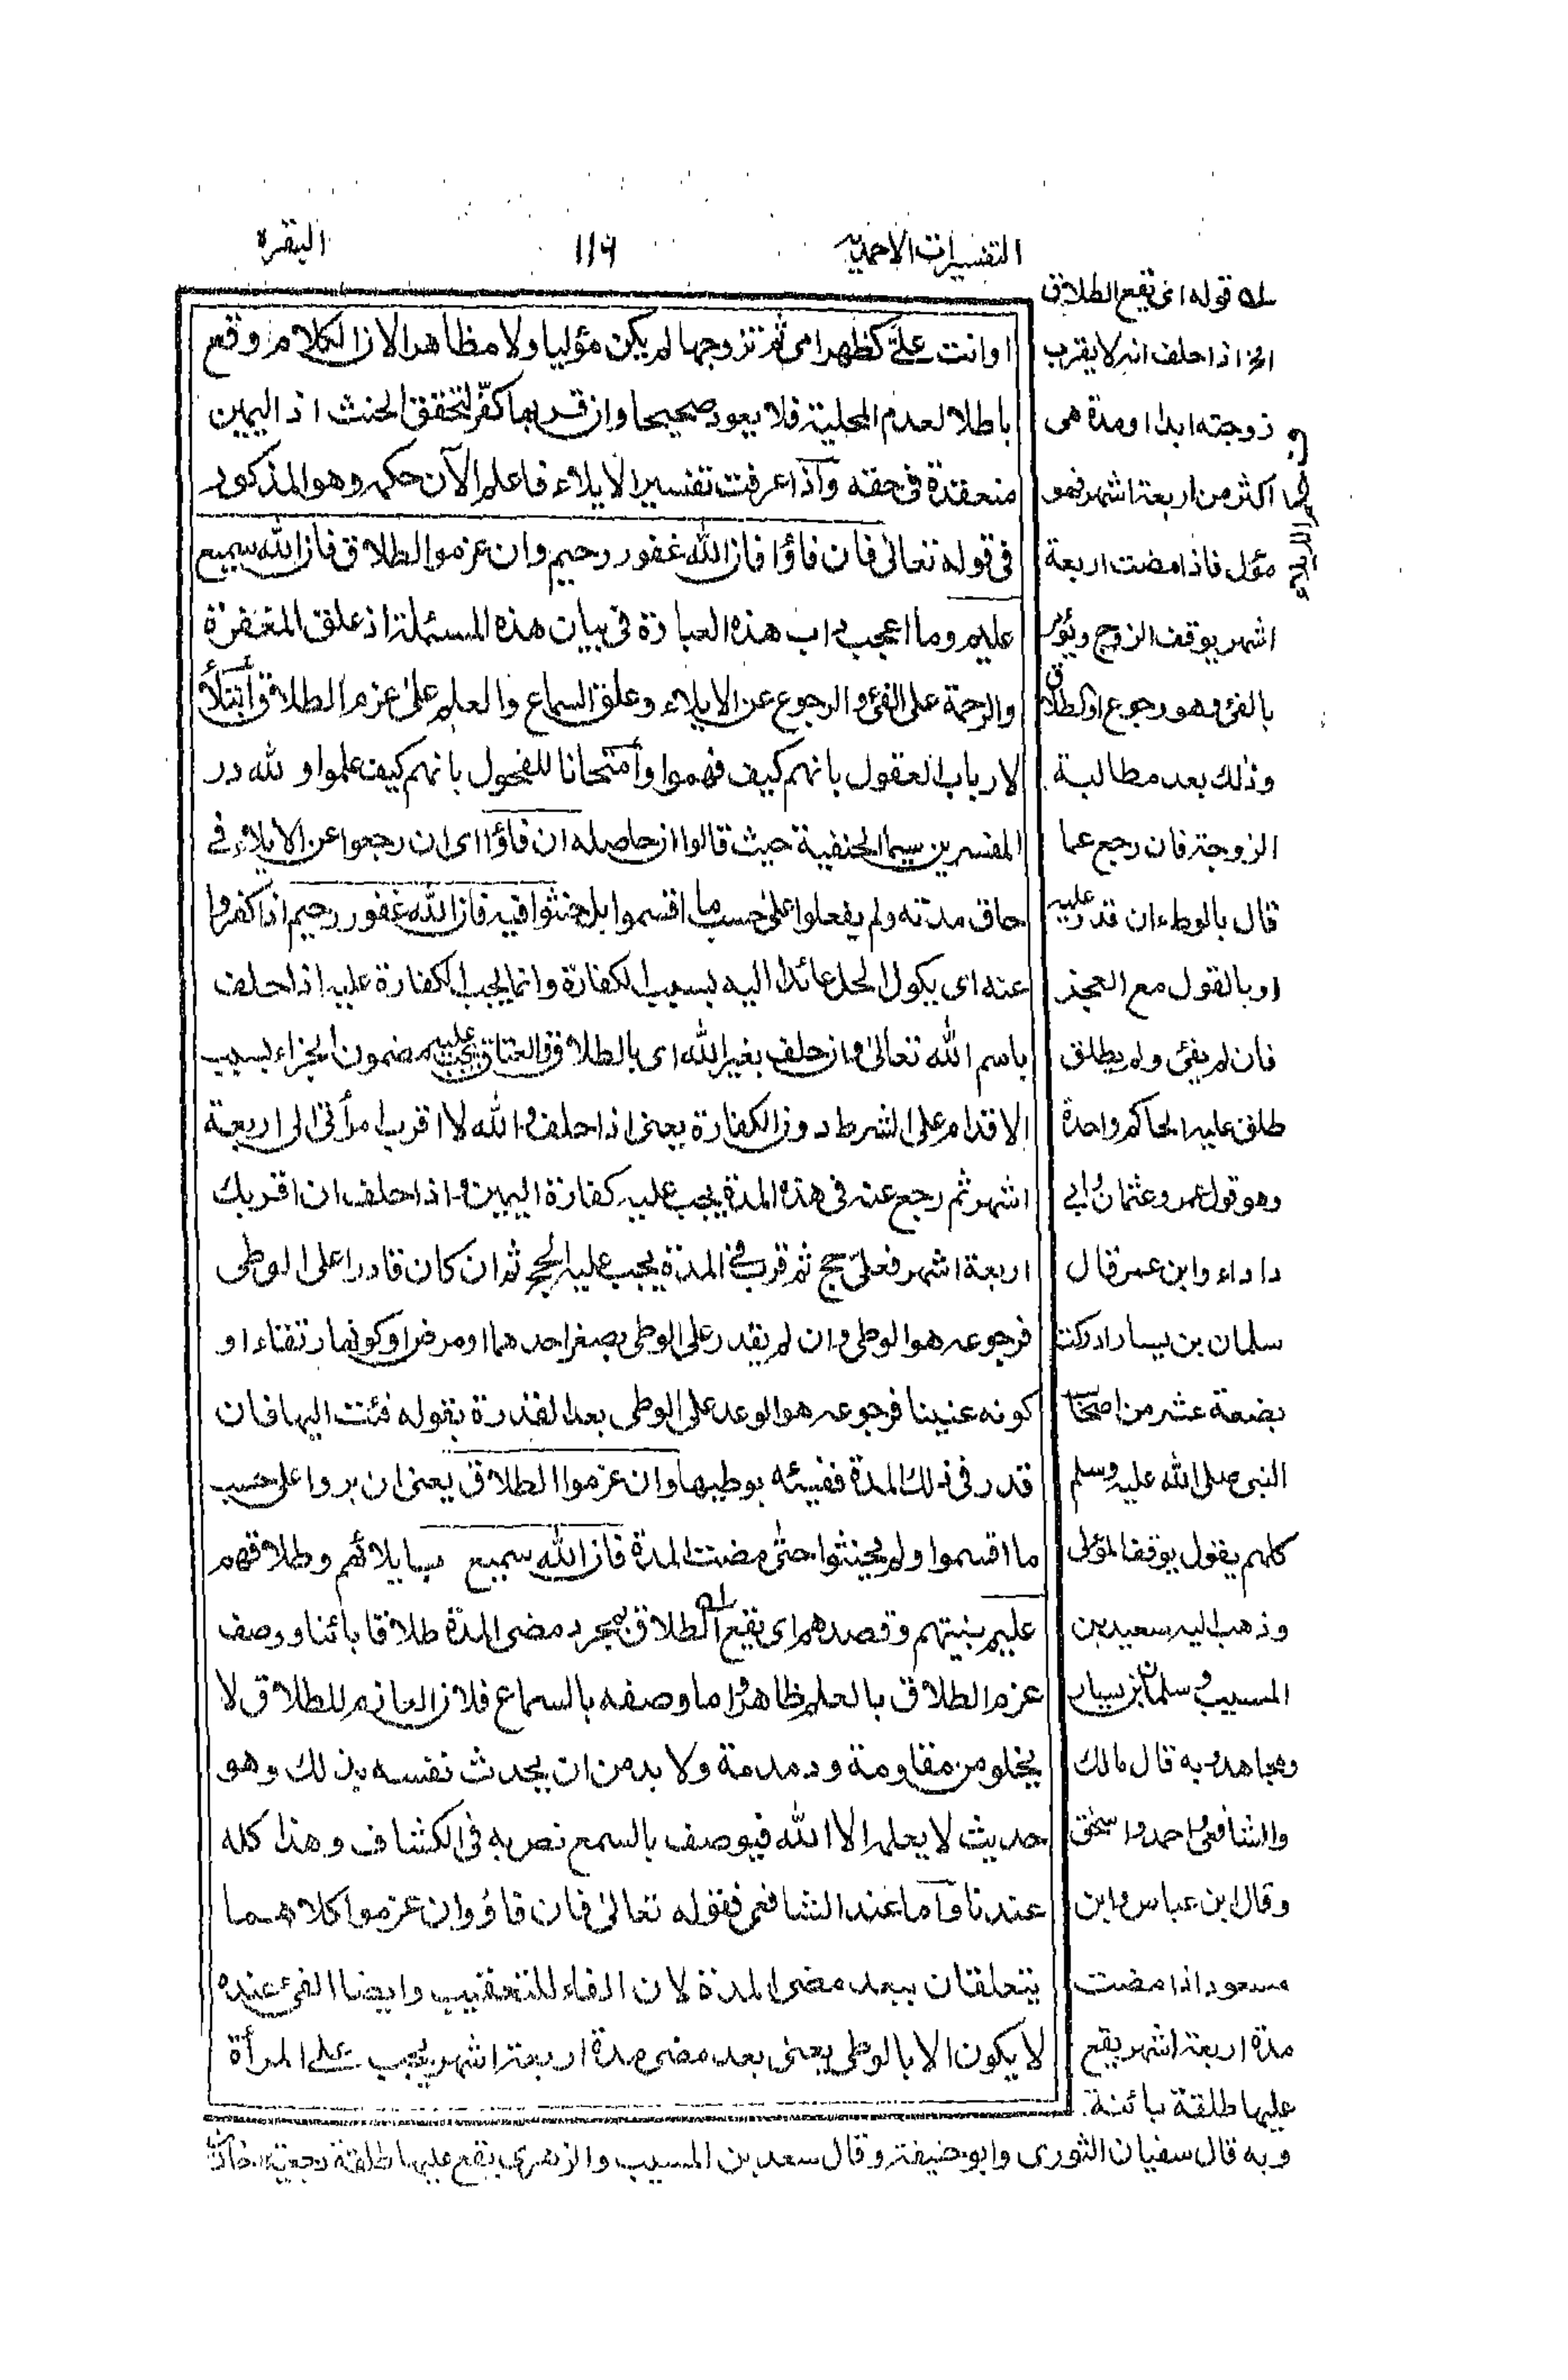 التفسيرات الاحمدیه ١١٦ البقرة
او انت علیَّ كظهر امى ثم تزوجها لم يكن مؤليا ولا مظاهرا لان الكلام وقع
باطلا لعدم المحلية فلا يعود صحيحا وان قربها كفّر لتحقق الحنث اذ اليمين
منعقدة فى حقه واذا عرفت تفسير الايلاء فاعلم الآن حكمه وهو المذكور
فى قوله تعالىٰ فان فاؤا فان الله غفور رحيم وان عزموا الطلاق فان الله سميع
عليم وما اعجب داب هذه العبارة فى بيان هذه المسئلة اذ علق المغفرة
والرحمة على الفئ والرجوع عن الايلاء وعلق السماع والعلم علىٰ عزم الطلاق ابتلأ
لارباب العقول بانهم كيف فهموا وامتحانا للفحول بانهم كيف علموا ولله در
المفسرين سيما الحنفية حيث قالوا ان حاصله ان فاؤا اى ان رجعوا عن الايلاء فى
حاق مدته ولم يفعلوا علىٰ حسب ما اقسموا بل حنثوا فيه فان الله غفور رحيم اذا كفروا
عنه اى يكول الحل عائدا اليه بسبب الكفارة وانما يجب الكفارة عليه اذا حلف
باسم الله تعالىٰ وان حلف بغير الله اى بالطلاق والعتاق يجب عليه مضمون الجزاء بسبب
الاقدام على الشرط دون الكفارة يعنى اذا حلف والله لا اقرب امرأتى الى اربعة
اشهر ثم رجع عنه فى هذه المدة يجب عليه كفارة اليمين واذا حلف ان اقربك
اربعة اشهر فعلىّ حج ثم قرب فى المدة يجب عليه الحج ثم ان كان قادرا على الوطى
فرجوعه هو الوطى وان لم يقدر على الوطى بصغر احدهما او مرض او كونها رتقاء او
كونه عنينا فرجوعه هو الوعد على الوطى بعد القدرة بقوله فئت اليها فان
قدر فى ذلك المدة ففيئه بوطيها وان عزموا الطلاق يعنى ان بروا على حسب
ما اقسموا ولم يحنثوا حتىٰ مضت المدة فان الله سميع بايلائهم وطلاقهم
عليم بنيتهم وقصدهم اى يقع الطلاق بمجرد مضى المدة طلاقا بائنا ووصف
عزم الطلاق بالعلم ظاهر واما وصفه بالسماع فلان العازم للطلاق لا
يخلو من مقاومة ودمدمة ولا بد من ان يحدث نفسه بذلك وهو
حديث لا يعلمه الا الله فيوصف بالسمع نص به فى الكشاف وهذا كله
عندنا واما عند الشافعى فقوله تعالىٰ فان فاؤا وان عزموا كلاهما
يتعلقان ببعد مضى المدة لان الفاء للتعقيب وايضا الفئ عنده
لا يكون الا بالوطى يعنى بعد مضى مدة اربعة اشهر يجب على المرأة
له قوله اى يقع الطلاق
الخ اذا حلف انه لا يقرب
زوجته ابدا او مدة هى
اكثر من اربعة اشهر فهو
مؤل فاذا مضت اربعة
اشهر يوقف الزوج ويؤمر
بالفئ وهو رجوع او الطلاق
وذلك بعد مطالبة
الزوجة فان رجع عما
قال بالوطء ان قدر عليه
او بالقول مع العجز
فان لم يفئ ولم يطلق
طلق عليه الحاكم واحدة
وهو قول عمر وعثمان وابى
داداء وابن عمر قال
سلمان بن يسار ادركت
بضعة عشر من اصحاب
النبى صلى الله عليه وسلم
كلهم يقول يوقف المؤلى
وذهب اليه سعيد بن
المسيب و سلمان بن يسار
ومجاهد وبه قال مالك
والشافعى واحمد واسحٰق
وقال ابن عباس وابن
مسعود اذا مضت
مدة اربعة اشهر يقع
عليها طلقة بائنة.
وبه قال سفيان الثورى وابو حنيفة وقال سعد بن المسيب والزهرى يقع عليها طلقة رجعية